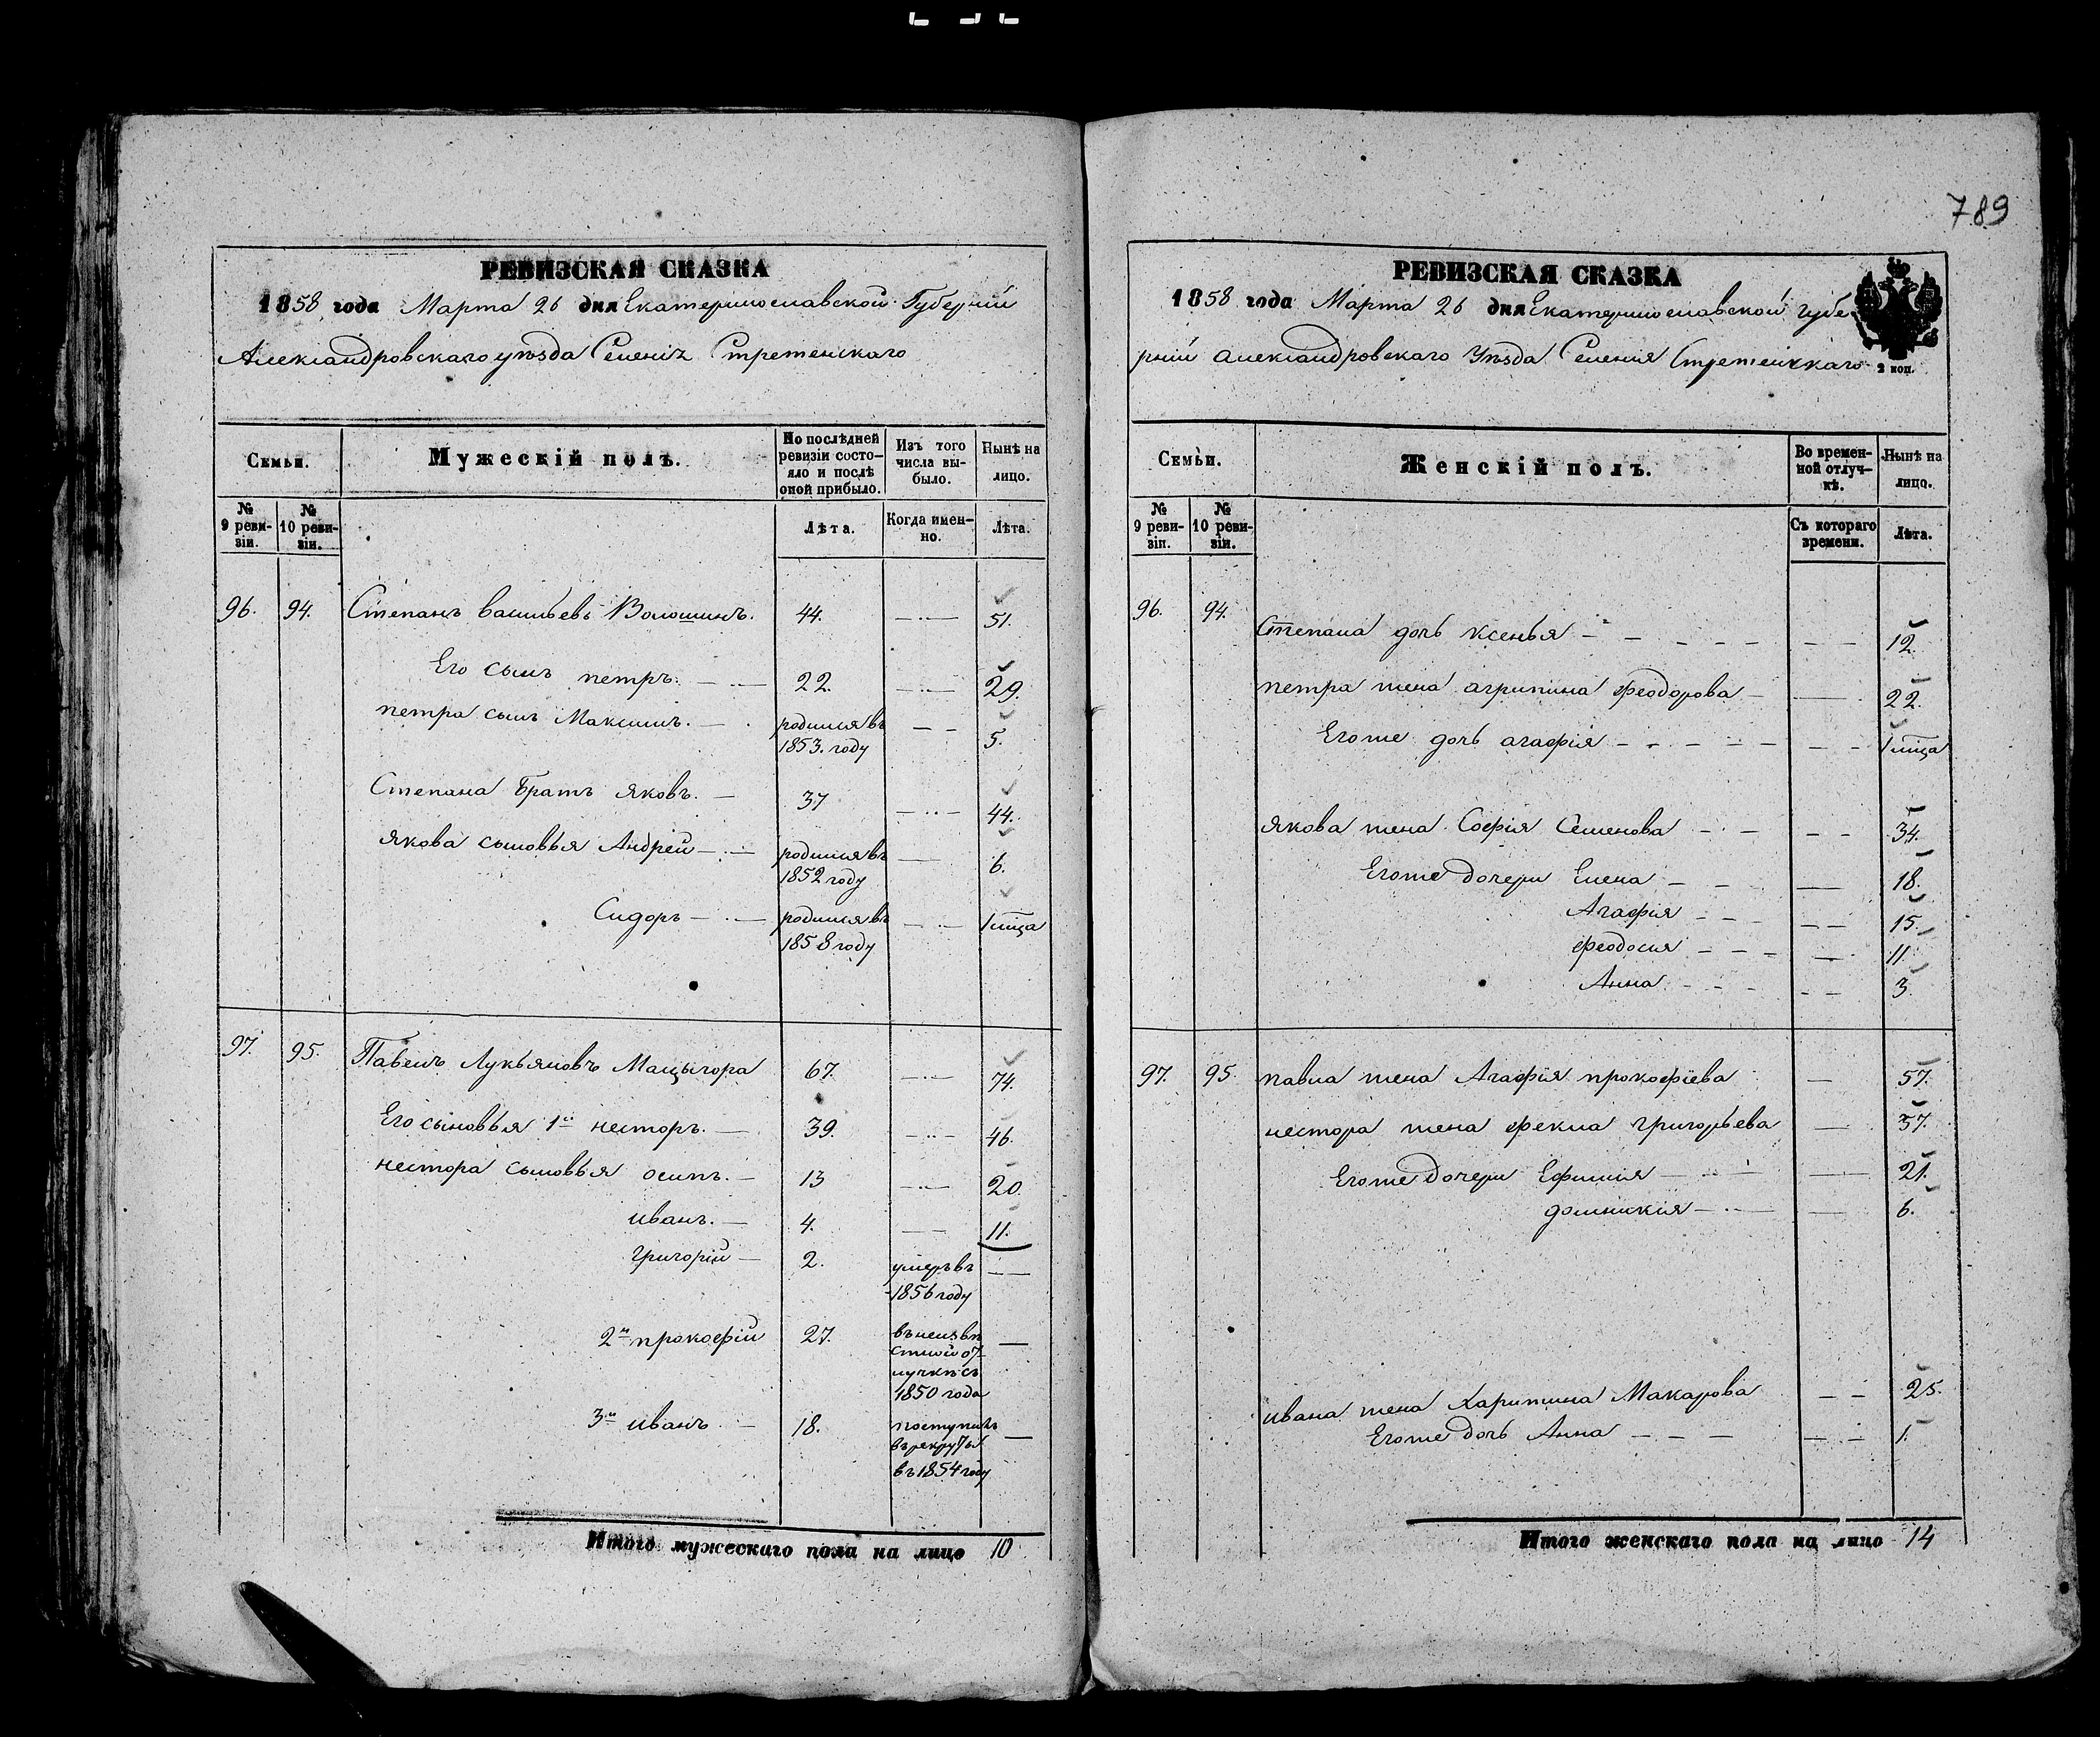 789
РЕВИЗСКАЯ СКАЗКА
1858 года Марта 26 дня Екатеринославской Губерніи
Александровскаго уѣзда Селенія Стретенскаго
Семьи.
Мужескій полъ.
По послѣдней ревизіи состояло и послѣ оной прибыло.
Изъ того числа выбыло.
Нынѣ на лицо.
№ 9 ревизіи.
№ 10 ревизіи.
Лѣта.
Когда именно.
Лѣта.
96. 94. Степанъ васильевъ Волошинъ. 44. — 51.
Его сынъ петръ. — 22. — 29.
петра сынъ Максимъ. — родился въ 1853. году — 5.
Степана Братъ яковъ. — 37 — 44.
якова сыновья Андрей — родился въ 1852 году — 6.
Сидоръ — родился въ 1858 году — 1 мѣца
97. 95. Павелъ Лукьяновъ Мацыгора 67. — 74.
Его сыновья 1й несторъ. — 39. — 46.
нестора сыновья осипъ. — 13 — 20.
иванъ. — 4. — 11.
григорій — 2. умеръ въ 1856 году —
2й прокофій 27. въ неизвѣстной отлучкѣ съ 1850 года —
3й иванъ — 18. поступилъ въ рекруты въ 1854 году —
Итого мужескаго пола на лицо 10
РЕВИЗСКАЯ СКАЗКА
1858 года Марта 26 дня Екатеринославской губе
рніи александровскаго Уѣзда Селенія Стретенскаго
2 коп.
Семьи.
Женскій полъ.
Во временной отлучкѣ.
Нынѣ на лицо.
№ 9 ревизіи.
№ 10 ревизіи.
Съ котораго времени.
Лѣта.
96. 94. Степана дочь ксенья — — 12.
петра жена агрипина феодорова — 22.
Его же дочь агафія — — 1 мѣца
якова жена София Семенова — — 34.
Его же дочери Елена — — 18.
Агафия — — 15.
феодосия — — 11
Анна — — 3.
97. 95. павла жена Агафія прокофіева — 57.
нестора жена фекла григорьева — 37.
Его же дочери Ефимия — — 21.
домникия — — 6.
ивана жена Харитина Макарова — 25.
Его же дочь Анна — — 1.
Итого женскаго пола на лицо 14